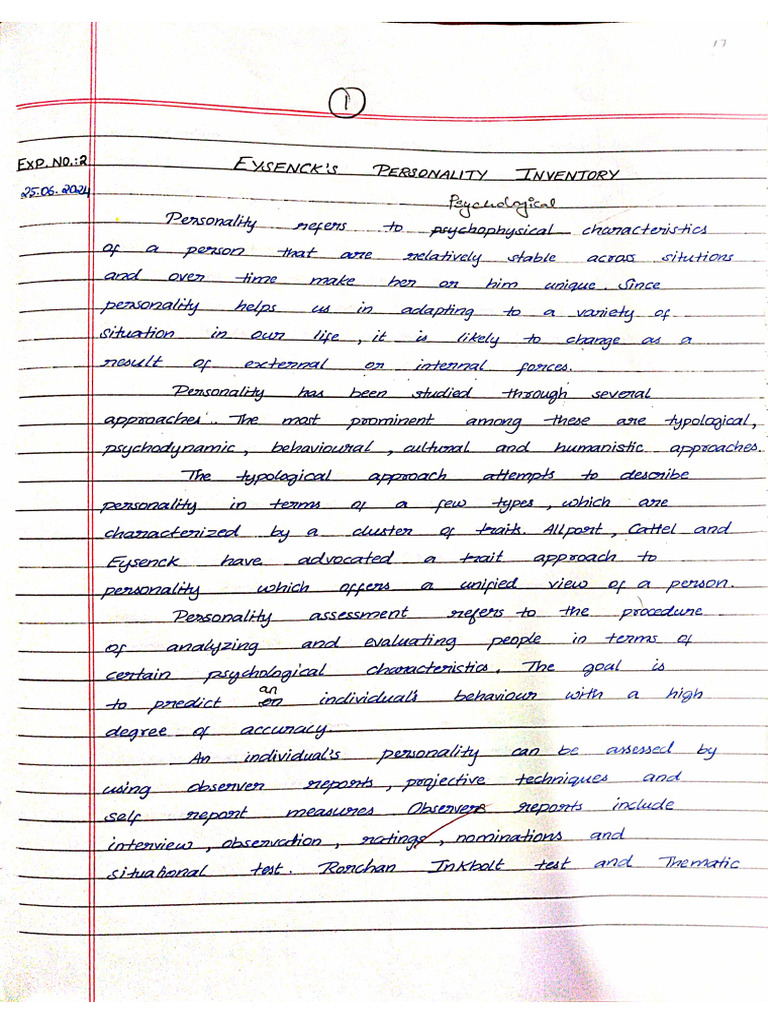 17
1
EXP. NO.:2
EYSENCK'S PERSONALITY INVENTORY
25.06.2024
Psychological
Personality refers to psychophysical characteristics
of a person that are relatively stable across situtions
and over time make her or him unique. Since
personality helps us in adapting to a variety of
situation in our life, it is likely to change as a
result of external or internal forces.
Personality has been studied through several
approaches. The most prominent among these are typological,
psychodynamic, behavioural, cultural and humanistic approaches.
The typological approach attempts to describe
personality in terms of a few types, which are
characterized by a cluster of traits. Allport, Cattel and
Eysenck have advocated a trait approach to
personality which offers a unified view of a person.
Personality assessment refers to the procedure
of analyzing and evaluating people in terms of
certain psychological characteristics. The goal is
to predict an individual's behaviour with a high
degree of accuracy.
An individual's personality can be assessed by
using observer reports, projective techniques and
self report measures. Observers reports include
interview, observation, ratings, nominations and
situational test. Rorchan Inkbolt test and Thematic